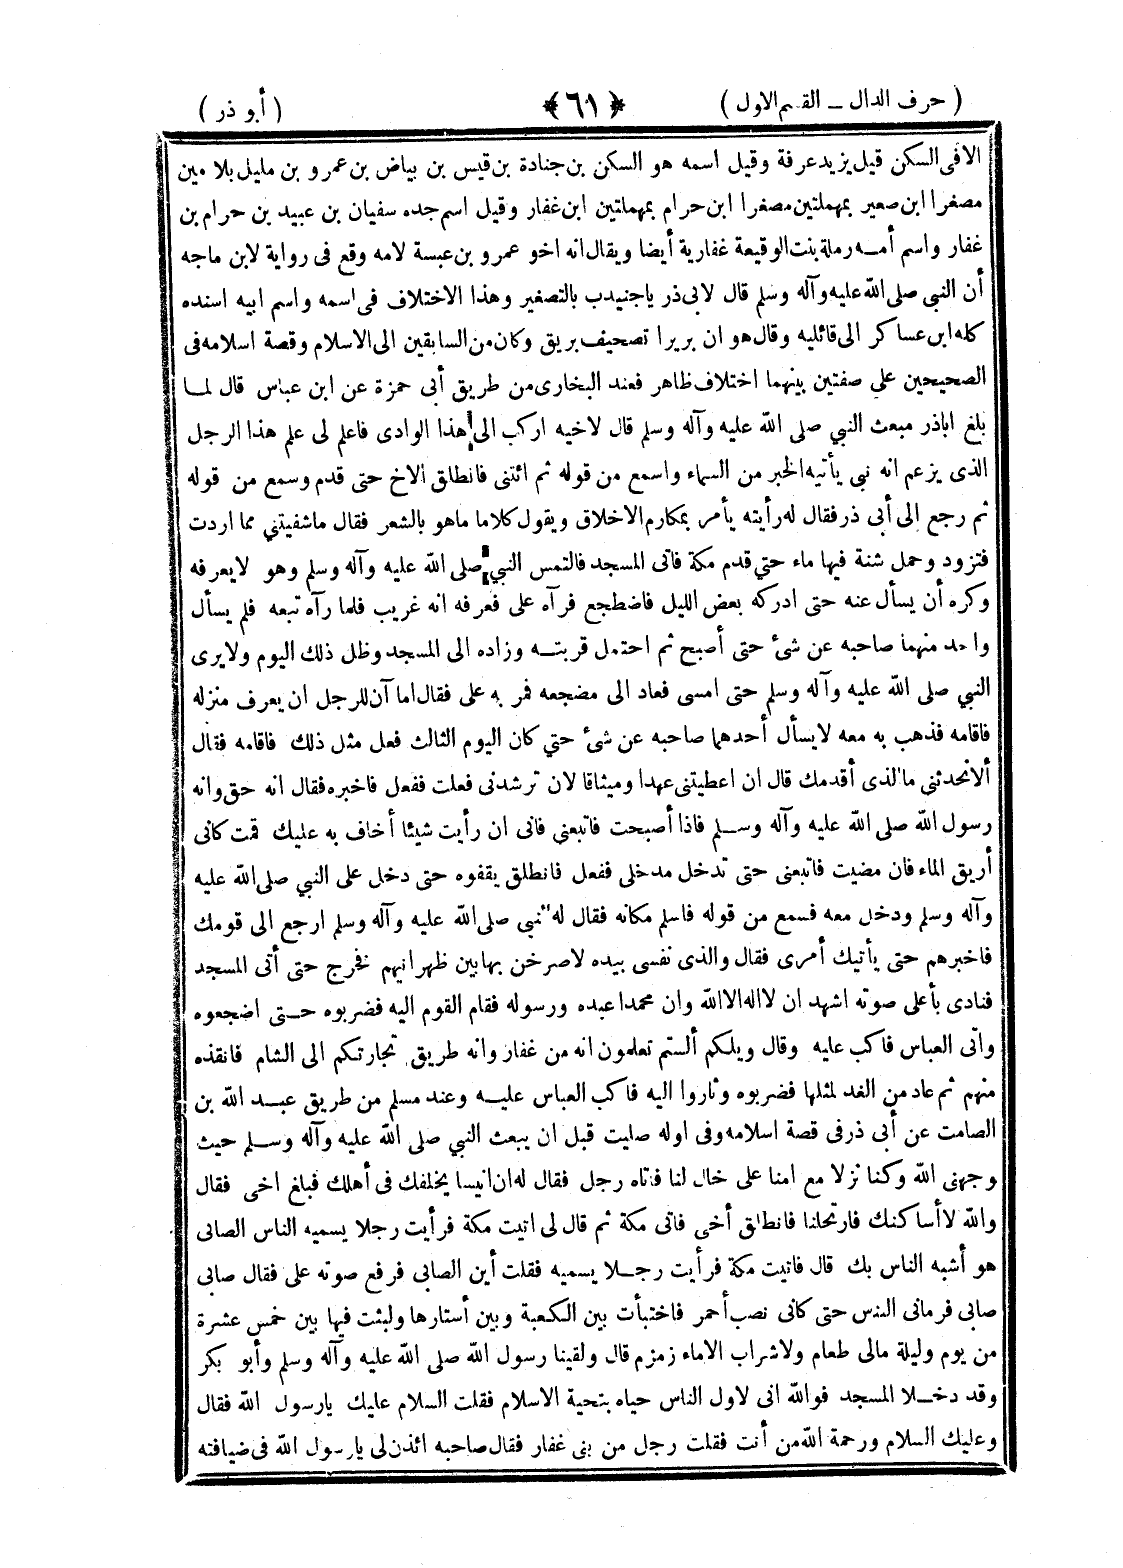 ( حرف الدال ــ القسم الاول ) ﴿ ٦١ ﴾ ( أبو ذر )
الا فى السكن قيل يزيد عرفة وقيل اسمه هو السكن بن جنادة بن قيس بن بياض بن عمرو بن مليل بلامين
مصغرا ابن صعير بمهملتين مصغرا ابن حرام بمهملتين ابن غفار وقيل اسم جده سفيان بن عبيد بن حرام بن
غفار واسم أمــه رملة بنت الوقيعة غفارية أيضا ويقال انه اخو عمرو بن عبسة لامه وقع فى رواية لابن ماجه
أن النبي صلى الله عليه وآله وسلم قال لابى ذر يا جنيدب بالتصغير وهذا الاختلاف فى اسمه واسم ابيه اسنده
كله ابن عساكر الى قائليه وقال هو ان بريرا تصحيف بريق وكان من السابقين الى الاسلام وقصة اسلامه فى
الصحيحين على صفتين بينهما اختلاف ظاهر فعند البخارى من طريق أبى حمزة عن ابن عباس قال لمــا
بلغ اباذر مبعث النبي صلى الله عليه وآله وسلم قال لاخيه اركب الى هذا الوادى فاعلم لى علم هذا الرجل
الذى يزعم انه نبي يأتيه الخبر من السماء واسمع من قوله ثم ائتنى فانطلق الاخ حتى قدم وسمع من قوله
ثم رجع الى أبى ذر فقال له رأيته يأمر بمكارم الاخلاق ويقول كلاما ماهو بالشعر فقال ماشفيتني مما اردت
فتزود وحمل شنة فيها ماء حتي قدم مكة فاتى المسجد فالتمس النبي صلى الله عليه وآله وسلم وهو لايعرفه
وكره أن يسأل عنه حتى ادركه بعض الليل فاضطجع فرآه على فعرفه انه غريب فلما رآه تبعه فلم يسأل
واحد منهما صاحبه عن شئ حتى أصبح ثم احتمل قربتــه وزاده الى المسجد وظل ذلك اليوم ولايرى
النبي صلى الله عليه وآله وسلم حتى امسى فعاد الى مضجعه فمر به على فقال اما آن للرجل ان يعرف منزله
فاقامه فذهب به معه لايسأل أحدهما صاحبه عن شئ حتي كان اليوم الثالث فعل مثل ذلك فاقامه فقال
ألاتحدثنى ما الذى أقدمك قال ان اعطيتنى عهدا وميثاقا لان ترشدنى فعلت ففعل فاخبره فقال انه حق وانه
رسول الله صلى الله عليه وآله وســلم فاذا أصبحت فاتبعني فانى ان رأيت شيئا أخاف به عليك قمت كانى
أريق الماء فان مضيت فاتبعنى حتى تدخل مدخلى ففعل فانطلق يقفوه حتى دخل على النبي صلى الله عليه
وآله وسلم ودخل معه فسمع من قوله فاسلم مكانه فقال له النبي صلى الله عليه وآله وسلم ارجع الى قومك
فاخبرهم حتى يأتيك أمرى فقال والذى نفسى بيده لاصرخن بها بين ظهرانيهم فخرج حتى أتى المسجد
فنادى بأعلى صوته اشهد ان لااله الا الله وان محمدا عبده ورسوله فقام القوم اليه فضربوه حــتى اضجعوه
وأتى العباس فاكب عليه وقال ويلكم ألستم تعلمون انه من غفار وانه طريق تجارتكم الى الشام فانقذه
منهم ثم عاد من الغد لمثلها فضربوه وثاروا اليه فاكب العباس عليــه وعند مسلم من طريق عبــد الله بن
الصامت عن أبى ذر فى قصة اسلامه وفى اوله صليت قبل ان يبعث النبي صلى الله عليه وآله وســلم حيث
وجهنى الله وكنا نزلا مع امنا على خال لنا فاتاه رجل فقال له ان انيسا يخلفك فى أهلك فبلغ اخى فقال
والله لا أساكنك فارتحلنا فانطلق أخى فاتى مكة ثم قال لى اتيت مكة فرأيت رجلا يسميه الناس الصابى
هو أشبه الناس بك قال فاتيت مكة فرأيت رجــلا يسميه فقلت أين الصابى فرفع صوته على فقال صابى
صابى فرمانى الناس حتى كانى نصب أحمر فاختبأت بين الكعبة وبين أستارها ولبثت فيها بين خمس عشرة
من يوم وليلة مالى طعام ولاشراب الاماء زمزم قال ولقينا رسول الله صلى الله عليه وآله وسلم وأبو بكر
وقد دخــلا المسجد فوالله انى لاول الناس حياه بتحية الاسلام فقلت السلام عليك يارسول الله فقال
وعليك السلام ورحمة الله من أنت فقلت رجل من بنى غفار فقال صاحبه ائذن لى يارسول الله فى ضيافته